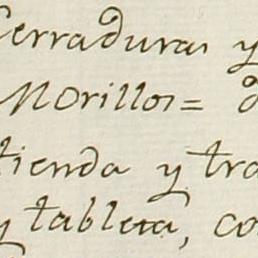 Cerraduras y
Morillos =
tienda y tra
y tableta, co